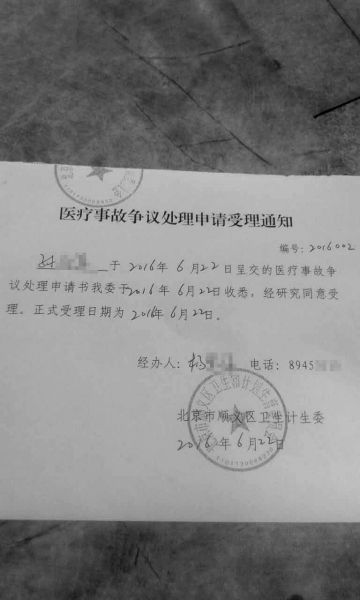 医疗事故争议处理申请受理通知
编号：2016002
于 2016年 6月22日呈交的医疗事故争
议处理申请书我委于2016年 6月22日收悉，经研究同意受
理。正式受理日期为 2016年6月22日。
经办人： 电话：8945
北京市顺义区卫生计生委
2016年6月22日